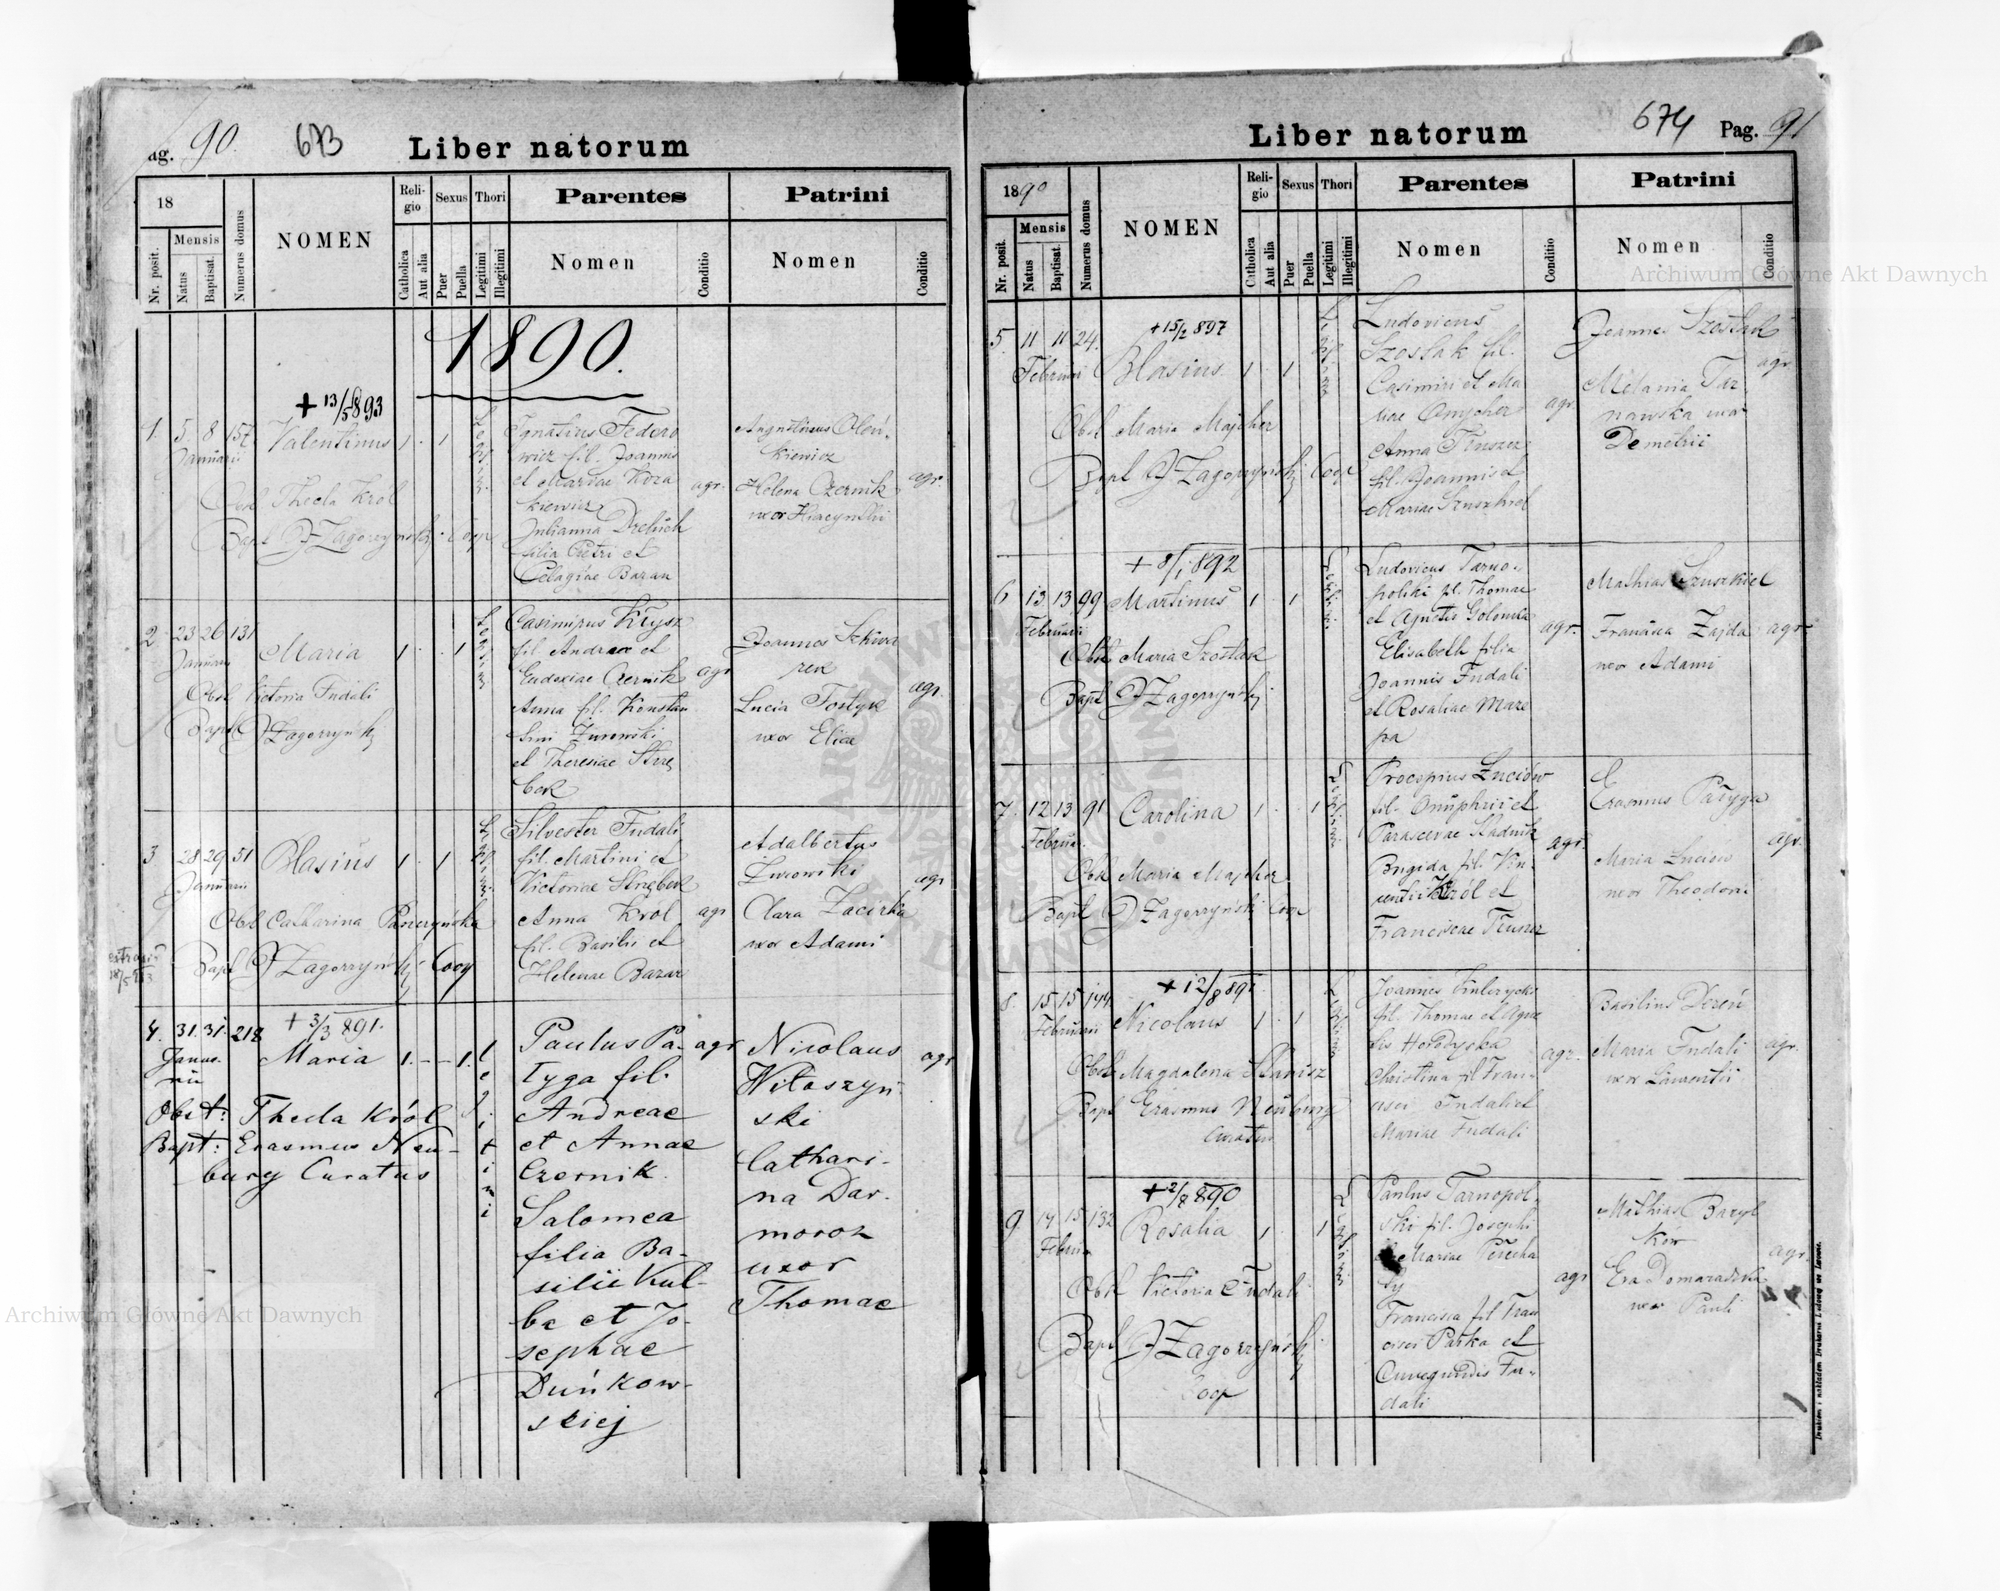 Pag. 90.
673
Liber natorum
18
Mensis
Nr. posit.
Natus
Baptisat.
Numerus domus
NOMEN
Reli-
gio
Catholica
Aut alia
Sexus
Puer
Puella
Thori
Legitimi
Illegitimi
Parentes
Nomen
Conditio
Patrini
Nomen
Conditio
1890.
+ 13/5 893
1. 5 8 157 Valentinus 1 1
Januarii
Legitimi
Ignatius Federo
wicz fil. Joannis
et Mariae Koza
kiewicz
Julianna
filia Petri et
Pelagiae Bazan
agr.
Augustinus Oleń-
kiewicz
Helena Czernik
uxor
agr.
Obst Thecla Król
Bapt J Zagorzyński Coop
2 23 26 131 Maria 1 1
Januarii
Legitimi
Casimirus Krysz
fil Andreae et
Eudoxiae Czernik
Anna fil. Konstan
tini Żurowski
et Theresiae Strze
bek
agr
Joannes
Lucia
uxor Eliae
agr.
Obst Victoria Fudali
Bapt J Zagorzyński
3 28 29 51 Blasius 1 1
Januarii
Legitimi
Silvester Fudali
fil. Martini et
Victoriae
Anna Król
fil. Basilii et
Helenae Bazan
agr
Adalbertus
Żurowski
Clara
uxor Adami
agr
Obst Catharina
Bapt J Zagorzyński Coop
4. 31. 31. 218 + 3/3 891.
Janua-
rii
Maria 1. — — 1.
Legitimi
Paulus Pa-
tyga fil.
Andreae
et Annae
Czernik.
Salomea
filia Ba-
silii Kul-
ba et Jo-
sephae
Duńkow-
skiej
agr
Nicolaus
Witoszyń-
ski
Cathari-
na Dar-
moroz
uxor
Thomae
agr
Obst: Thecla Król
Bapt: Erasmus Neu-
burg Curatus
Liber natorum
674
Pag. 91
1890
Mensis
Nr. posit.
Natus
Baptisat.
Numerus domus
NOMEN
Reli-
gio
Catholica
Aut alia
Sexus
Puer
Puella
Thori
Legitimi
Illegitimi
Parentes
Nomen
Conditio
Patrini
Nomen
Conditio
+ 15/2 897
5. 11 11 24. Blasius 1 1
Februarii
Ludovicus
Szostak fil.
Casimiri et Ma
riae
Anna
fil. Joannis et
Mariae
agr
Joannes Szostak
Melania Tar
nawska uxor
Demetrii
agr
Obst Maria Majcher
Bapt J Zagorzyński Coop
+ 8/1 892
6 13 13 99 Martinus 1 1
Februarii
Ludovicus Tarno-
polski fil. Thomae
et Agnetis
Elisabeth filia
Joannis Fudali
et Rosaliae
agr.
Mathias Szuszkiel
Francisca Zajda
uxor Adami
agr
Obst Maria Szostak
Bapt J Zagorzyński
7. 12 13 91 Carolina 1 1
Procopius Łuciów
fil. Onuphrii et
Parascevae Hadnik
Brigida fil. Vin-
centii Król et
Franciscae
agr.
Erasmus Patyga
Maria Łuciów
uxor Theodori
agr.
Obst Maria Majcher
Bapt J Zagorzyński Coop
+ 12/8 89
8. 15 15 144 Nicolaus 1 1
Februarii
Joannes
fil. Thomae et Agne
tis
Christina fil Fran-
cisci Fudali et
Mariae Fudali
agr.
Basilius Dereń
Maria Fudali
uxor Laurentii
agr.
Obst Magdalena Stanisz
Bapt Erasmus Neuburg
Curatus
+ 2/8 890
9. 14 15 132 Rosalia 1 1
Paulus Tarnopol-
ski fil. Josephi
et Mariae
Francisca fil Fran
cisci Patka et
Cunegundis Fu-
dali
agr
Mathias
Eva Domaradzka
uxor Pauli
agr
Obst Victoria Fudali
Bapt J Zagorzyński
Coop
Archiwum Główne Akt Dawnych
Archiwum Główne Akt Dawnych